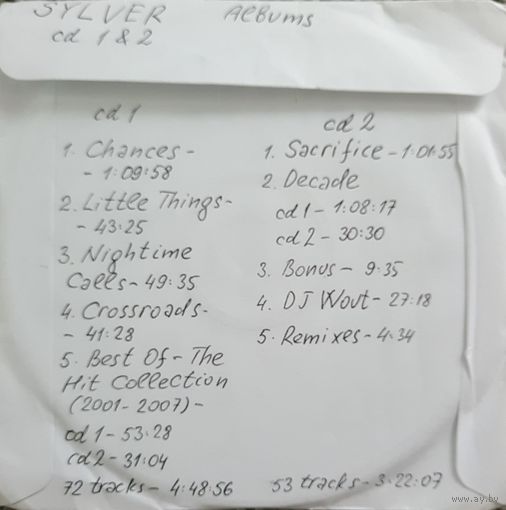 SYLVER Albums
cd 1 & 2
cd 1
1. Chances -
- 1:09:58
2. Little Things -
- 43:25
3. Nightime
Calls - 49:35
4. Crossroads -
- 41:28
5. Best Of - The
Hit Collection
(2001-2007) -
cd 1 - 53:28
cd 2 - 31:04
72 tracks - 4:48:56
cd 2
1. Sacrifice - 1:01:55
2. Decade
cd 1 - 1:08:17
cd 2 - 30:30
3. Bonus - 9:35
4. DJ Wout - 27:18
5. Remixes - 4:34
53 tracks - 3:22:07
www.ay.by